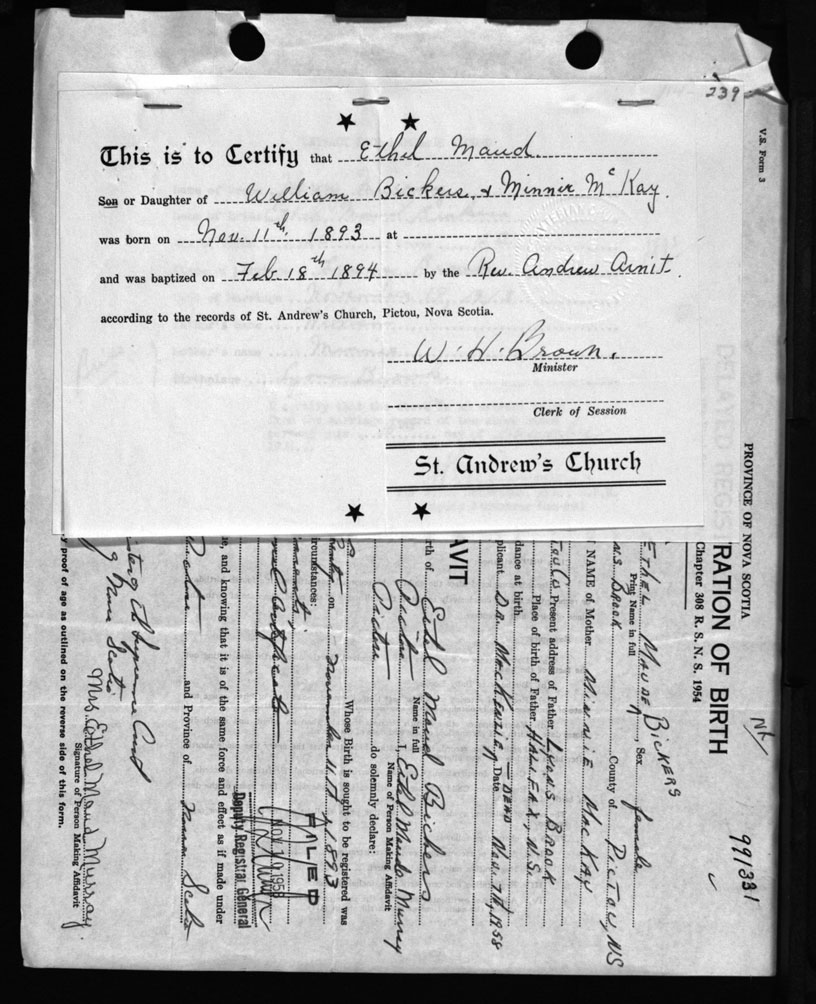 239
This is to Certify that Ethel Maud.
Son or Daughter of William Bickers, & Minnie McKay.
was born on Nov. 11th. 1893 at
and was baptized on Feb 18th 1894 by the Rev. Andrew Armit.
according to the records of St. Andrew's Church, Pictou, Nova Scotia.
W. H. Brown.
Minister
Clerk of Session
St. Andrew's Church
V.S. Form 3
PROVINCE OF NOVA SCOTIA
99/331
DELAYED REGIS
RATION OF BIRTH
Chapter 308 R. S. N. S. 1954
ETHEL MAUDE BICKERS, Sex female
Print Name in full
NS BROOK County of PICTOU, NS
NAME of Mother MINNIE MACKAY
Present address of Father LYONS BROOK
Place of birth of Father HALIFAX, N.S.
dance at birth.
plicant DR. MACKENZIE, DEAD Date Nov. 7th, 1958
AVIT
rth of Ethel Maud Bickers
Name in full
Pictou I, Ethel Maude Murray
Name of Person Making Affidavit
Pictou do solemnly declare:
Whose Birth is sought to be registered was
on November 11th, 1893
ircumstances:
FILED
NOV 10 1958
Deputy Registrar General
e, and knowing that it is of the same force and effect as if made under
Pictou and Province of Nova Scotia
Supreme Court
Nova Scotia
Mrs. Ethel Maud Murray
Signature of Person Making Affidavit
y proof of age as outlined on the reverse side of this form.